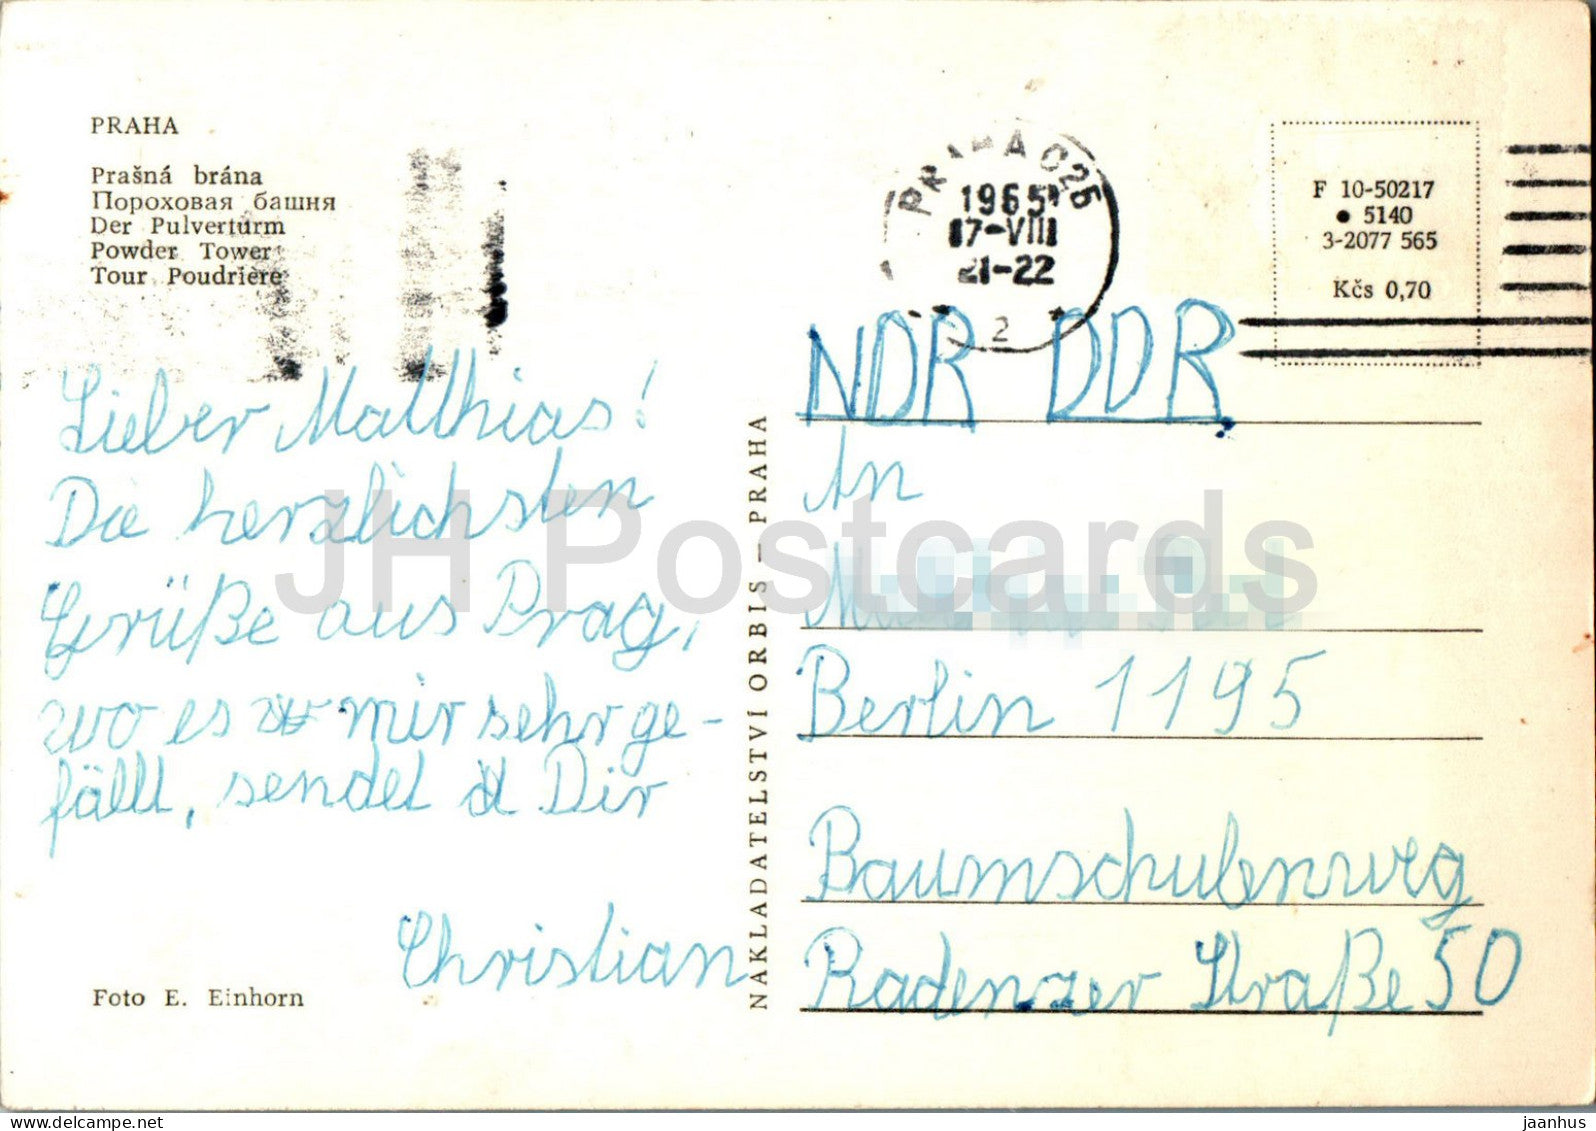 PRAHA
Prašná brána
Пороховая башня
Der Pulverturm
Powder Tower
Tour Poudrière
Lieber Matthias!
Die herzlichsten
Grüße aus Prag,
wo es mir sehr ge-
fällt, sendet Dir
Christian
Foto E. Einhorn
NAKLADATELSTVÍ ORBIS – PRAHA
PRAHA 025
1965
7-VIII
21-22
2
F 10-50217
• 5140
3-2077 565
Kčs 0,70
NDR DDR
An
Berlin 1195
Baumschulenweg
Radenzer Straße 50
JH Postcards
www.delcampe.net
jaanhus